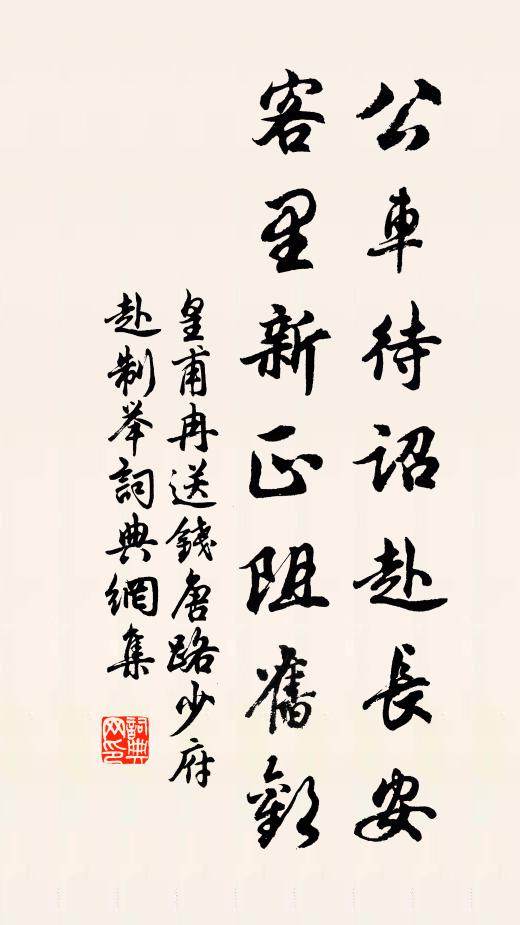 公車待詔赴長安
客里新正阻舊歡
皇甫冉送錢唐路少府
赴制举詞典網集
詞典網印